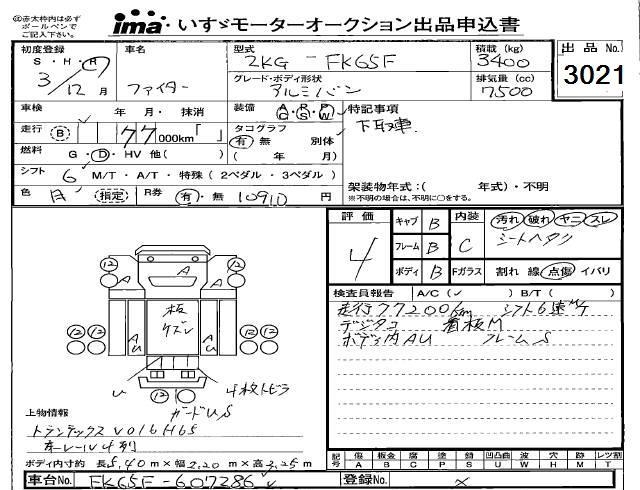 ◎太枠内は必ず ボールペンでご記入下さい。 ima いすゞモーターオークション出品申込書
初度登録 車名 型式 2KG - FK65F 積載(kg) 3400 出品 No.
S・H・R 3/12月 ファイター グレード・ボディ形状 アルミバン 排気量(cc) 7500 3021
車検 年 月・抹消 装備 A/C P/S P/W 特記事項
走行 B 77,000km「 」 タコグラフ 有 無 別体 下取車
燃料 G・D・HV 他( ) ( 年 月)
シフト 6 M/T・A/T・特殊(2ペダル・3ペダル) 架装物年式:( 年式)・不明
色 白 (指定) R券 有・無 10910 円 ※不明の場合は、不明に○をする。
評価 キャブ B 内装 汚れ 破れ ヤニ スレ
4 フレーム B C シートヘタリ
ボディ B Fガラス 割れ 線 点傷 イバリ
検査員報告 A/C(✓) B/T( )
走行77200km シフト6速M/T
デジタコ 看板M
ボディ内AU フレームS
12 12
12 12
A A A
板 キズレ
AU AU
12 12 12 12
U 4枚トビラ
12
ガードUS
上物情報
トランテックス V016H65
床レール4列
ボディ内寸約 長5.40m×幅2.20m×高2.25m
記号 傷 A 板金 B 腐 C 塗 P 錆 S 凹凸曲 U 波 W 穴 H 跡 M レツ割 T
車台No. FK65F-607286 登録No. ×